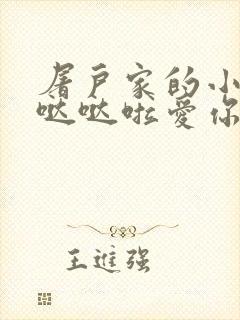 屠户家的小
哒哒啦爱你
王进强